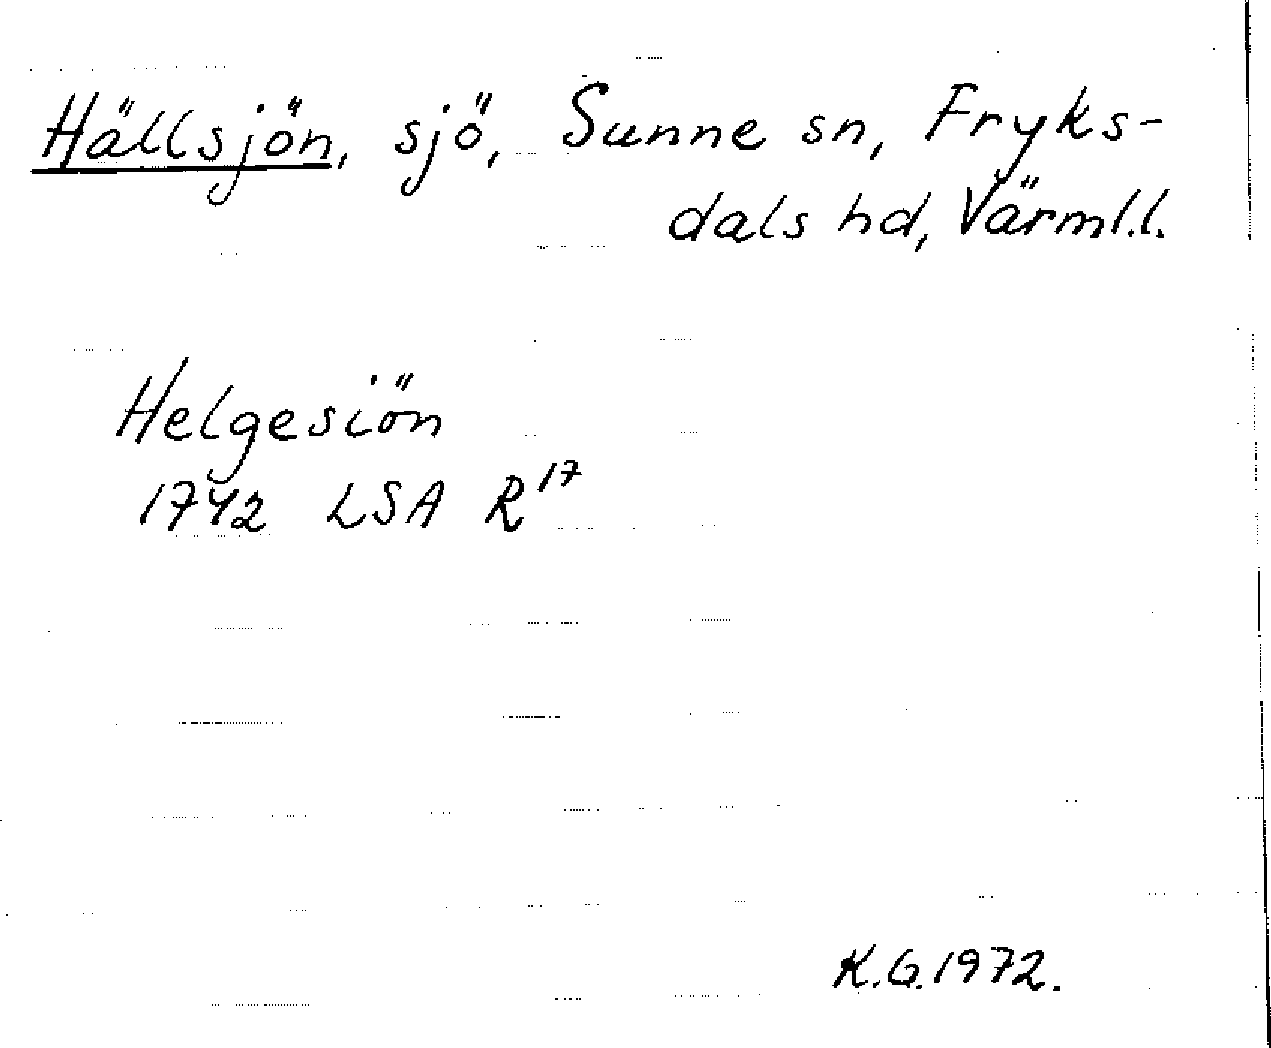 Hällsjön, sjö, Sunne sn, Fryks-
dals hd, Värml.l.
Helgesiön
1742 LSA R17
K.G.1972.